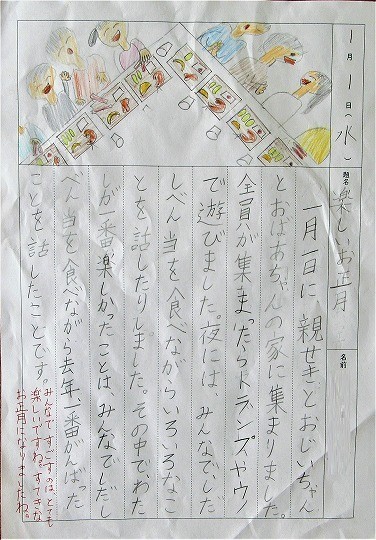 1月1日(水)
題名 楽しいお正月
名前
一月一日に、親せきとおじいちゃん
とおばあちゃんの家に集まりました。
全員が集まったらトランプやウノ
で遊びました。夜には、みんなでいだ
しべん当を食べながらいろいろなこ
とを話したりしました。その中でわた
しが一番楽しかったことは、みんなでしだし
べん当を食べながら去年、一番がんばった
ことを話したことです。
みんなですごすのは、とても
楽しいですね。すてきな
お正月になりましたね。